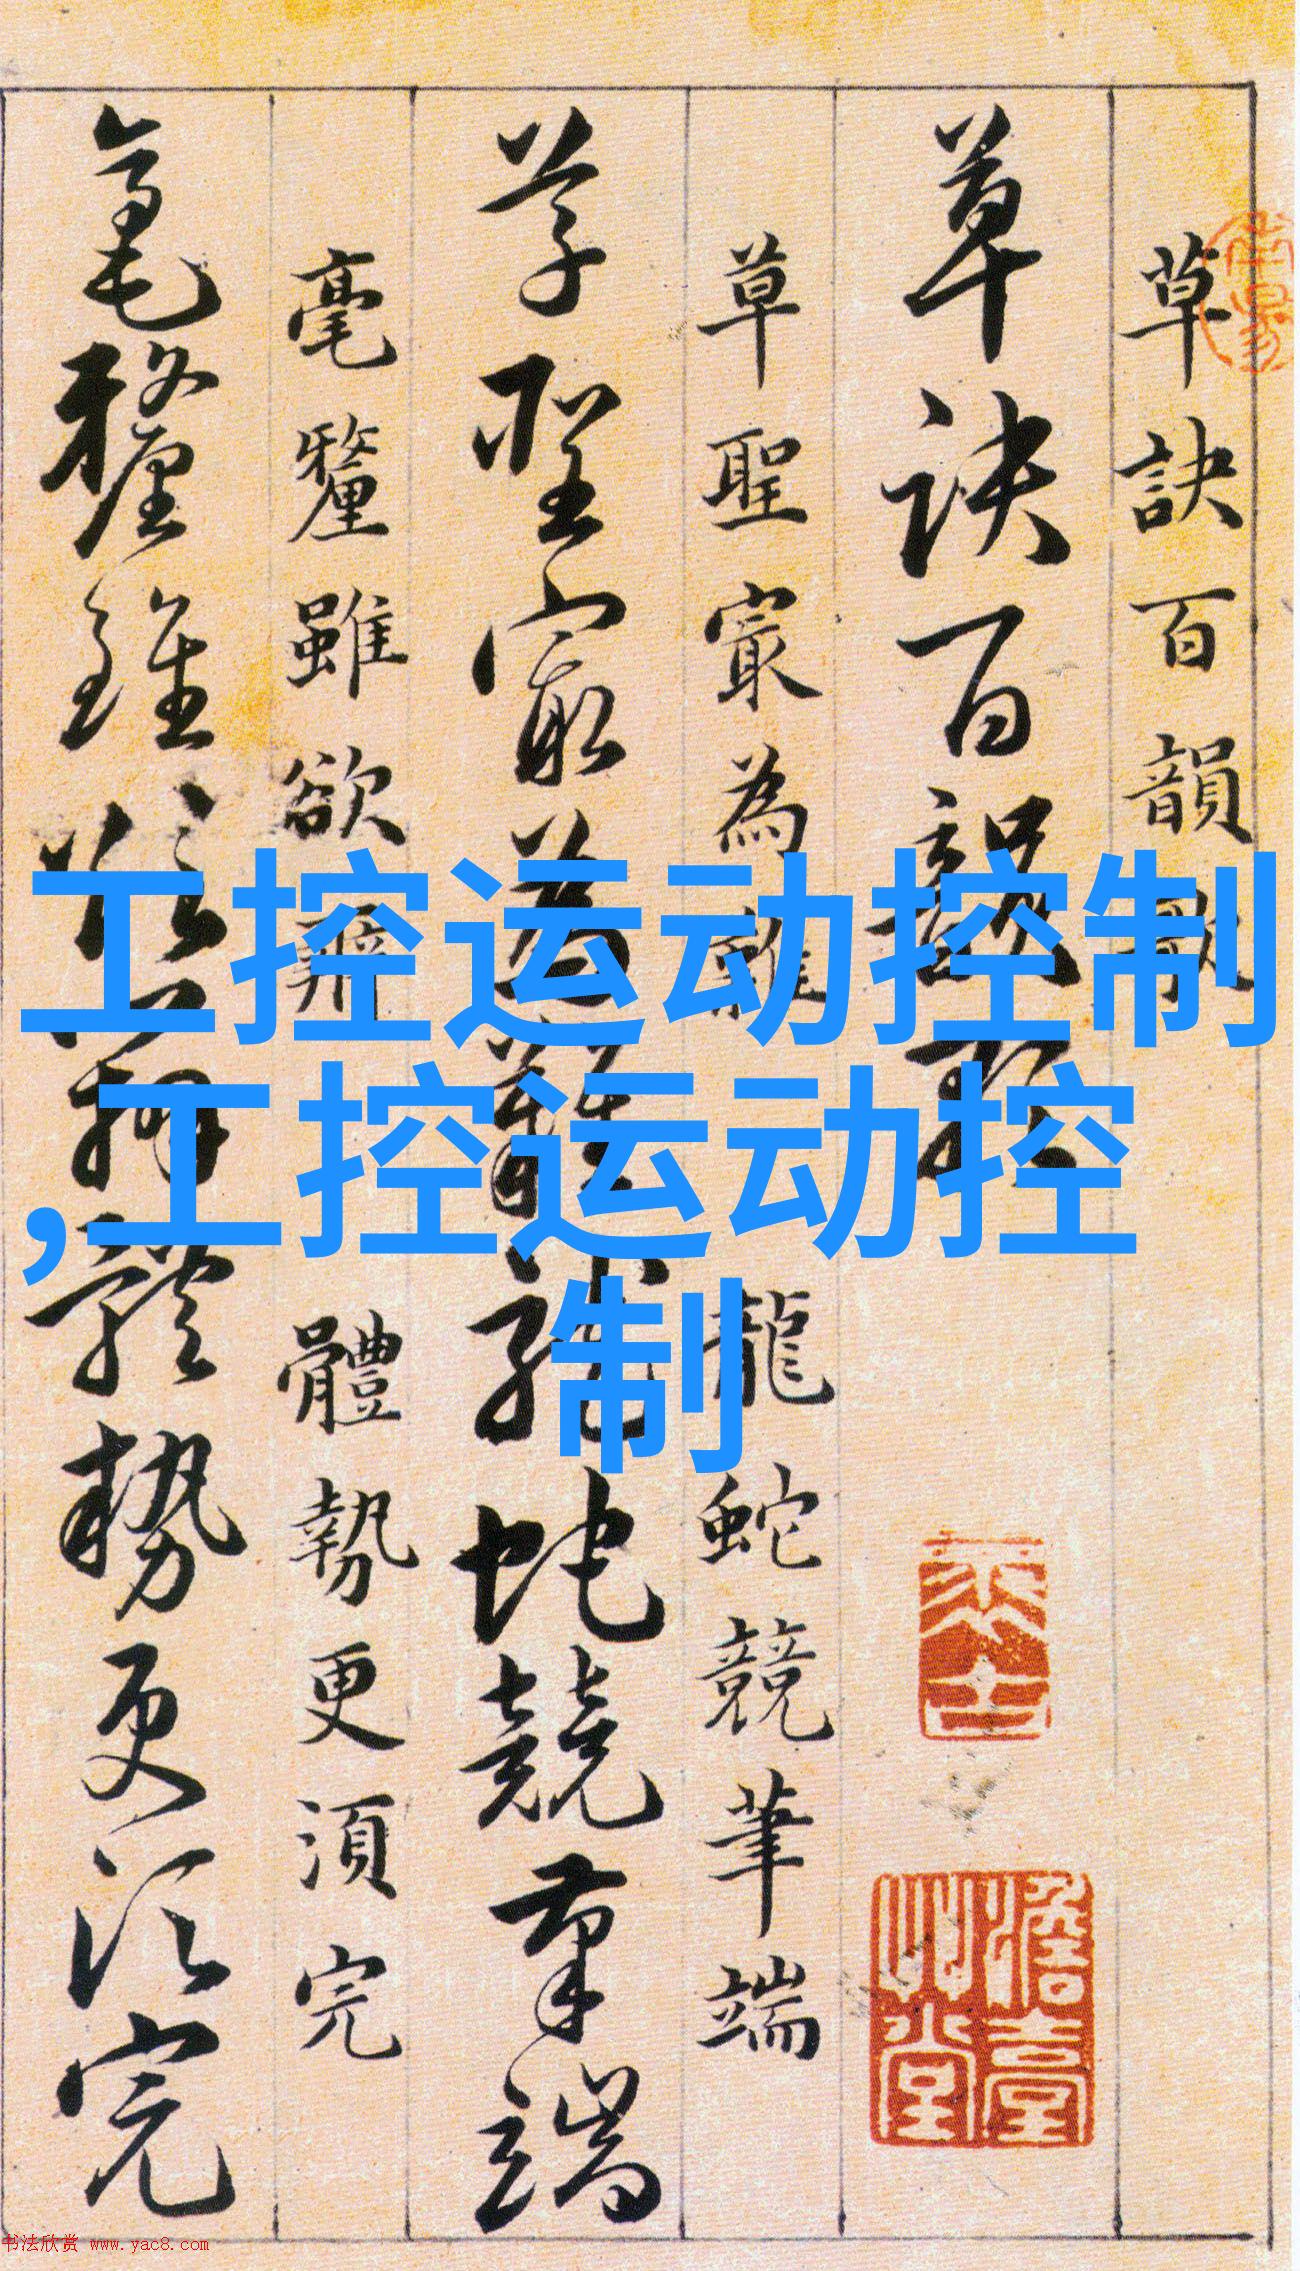 草訣百韻歌
草訣百韻歌
草聖寂為難 龍蛇競筆端
草聖寂為難龍蛇競筆端
毫釐雖欲辨 體勢更須完
毫釐雖欲辨體勢更須完
工控运动控制
,工控运动控
制
澹臺
州堂
书法欣赏 www.yac8.com